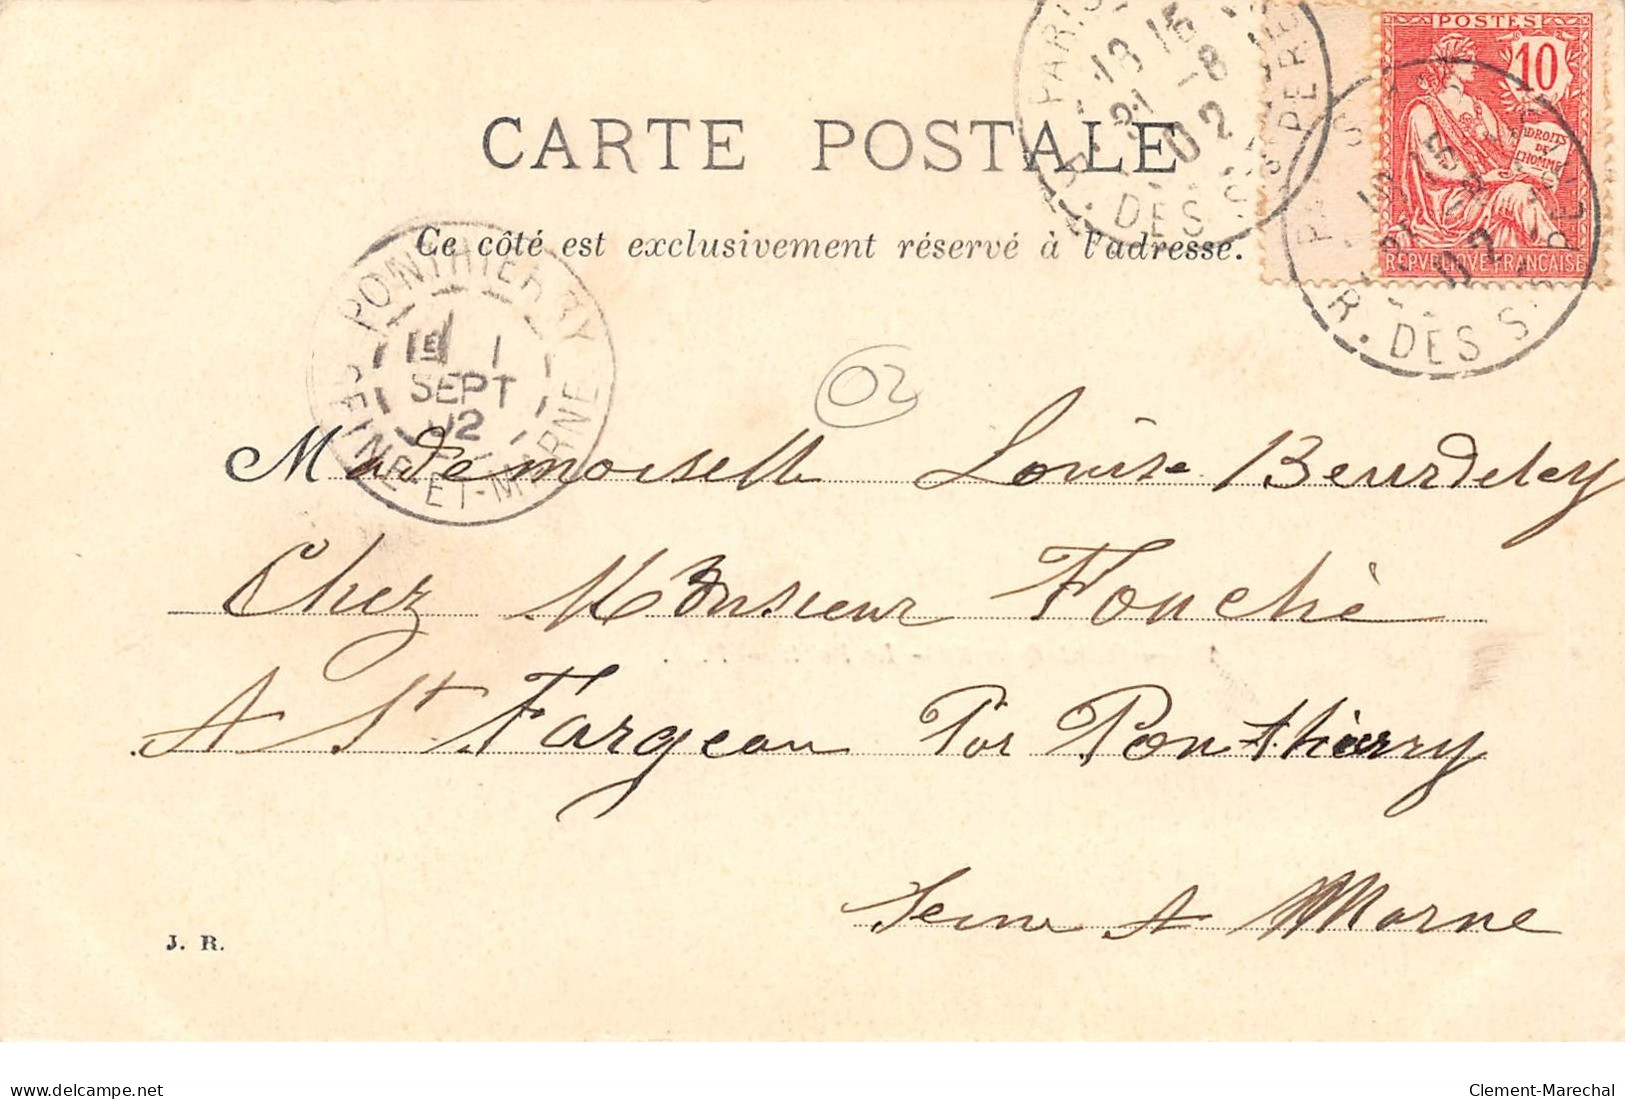 POSTES
10
DROITS
DE
L'HOMME
REPVBLIQVE FRANÇAISE
PARIS
18 15
31 -8
02
R. DES STS PERES
R. DES STS PERES
CARTE POSTALE
Ce côté est exclusivement réservé à l'adresse.
PONTHIERRY
1E 1
SEPT
02
SEINE-ET-MARNE
02
Mademoiselle Louise Beurdeley
Chez Monsieur Fouché
A St Fargeau Par Ponthierry
Seine & Marne
J. R.
delcampe.net
Clement-Marechal